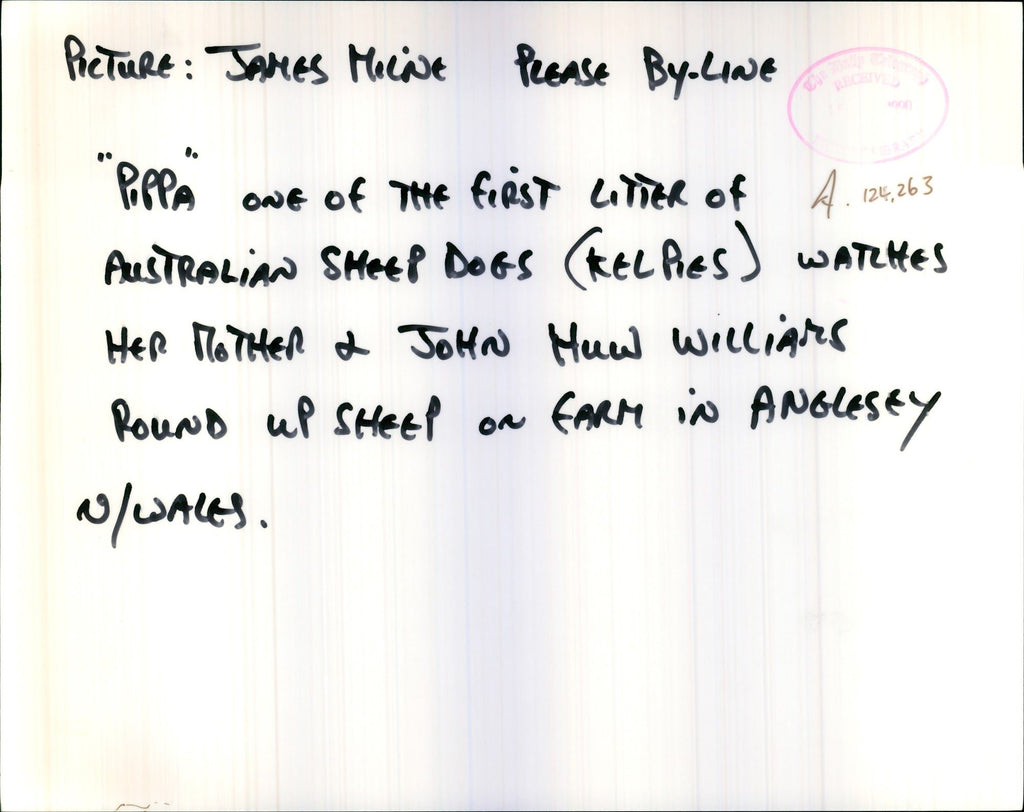 PICTURE: JAMES MILNE PLEASE BY-LINE
The Daily Telegraph
RECEIVED
"PIPPA" ONE OF THE FIRST LITTER OF
A. 124,263
AUSTRALIAN SHEEP DOGS (KELPIES) WATCHES
HER MOTHER & JOHN HUW WILLIAMS
ROUND UP SHEEP ON FARM IN ANGLESEY
N/WALES.